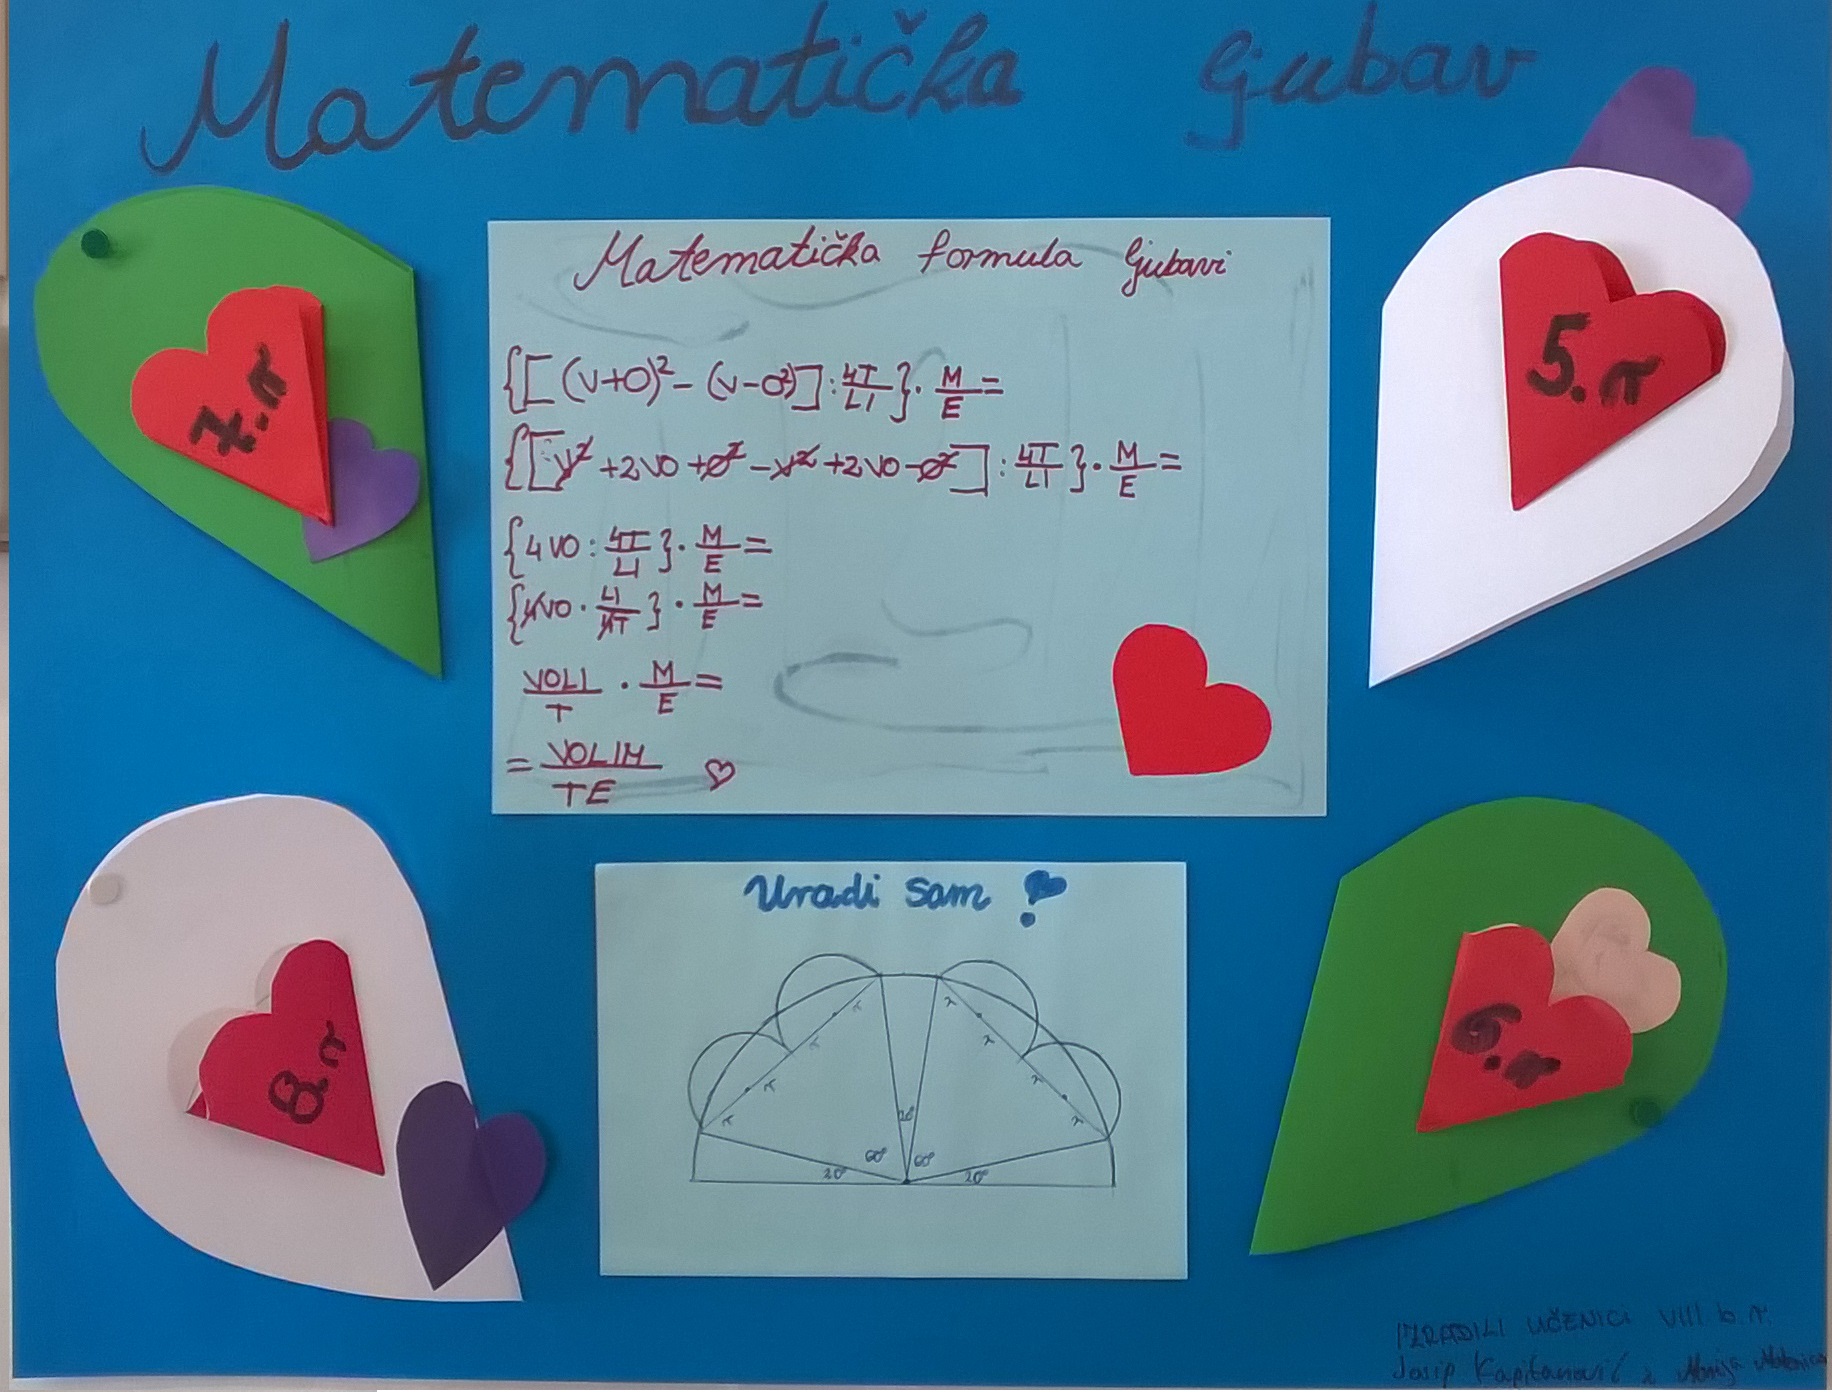 Matematička ljubav
Matematička formula ljubavi
{[(V+O)²-(V-O²)]:4T/LI}·M/E=
{[V²+2VO+O²-V²+2VO-O²]:4T/LI}·M/E=
{4VO:4T/LI}·M/E=
{4VO·LI/4T}·M/E=
VOLI/T·M/E=
=VOLIM/TE ♡
7.r
5.r
8.r
6.r
Uradi sam
r r
r r
r r
r r
20°
60° 60°
20° 20°
IZRADILI UČENICI VIII b r.
Josip Kapitanović i